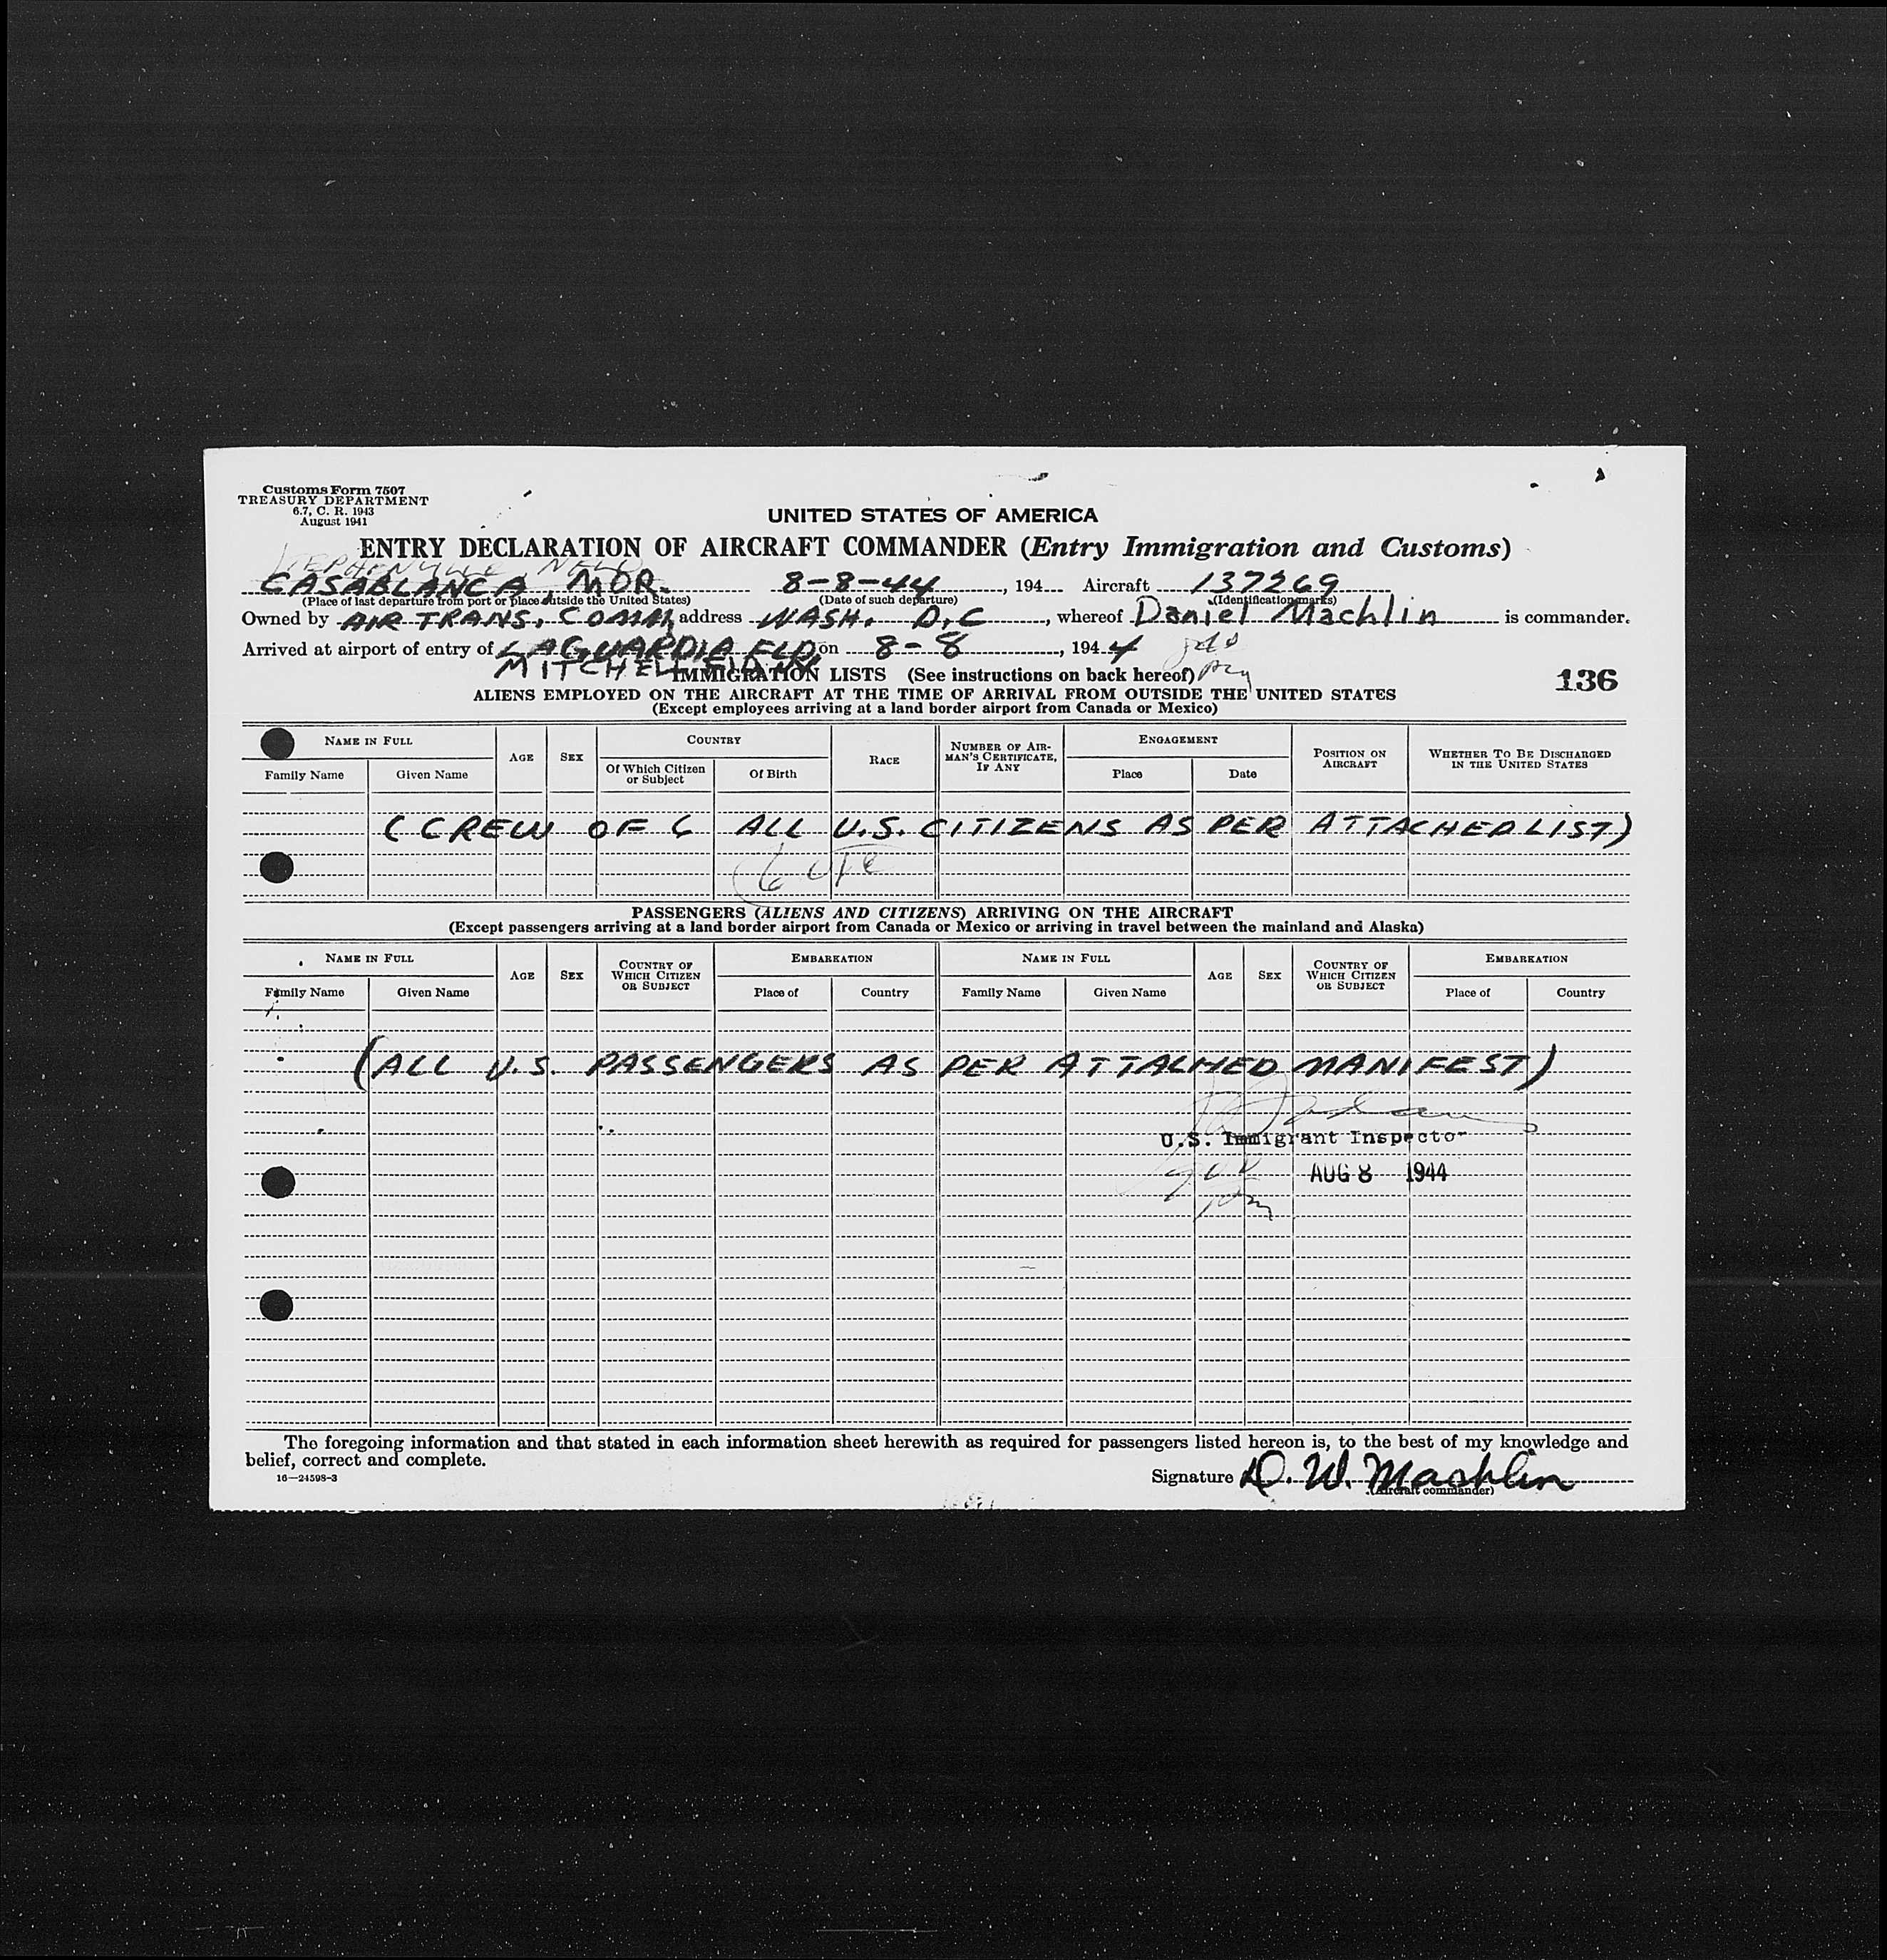 Customs Form 7507
TREASURY DEPARTMENT
6.7, C. R. 1943
August 1941
UNITED STATES OF AMERICA
ENTRY DECLARATION OF AIRCRAFT COMMANDER (Entry Immigration and Customs)
CASABLANCA, MOR. 8-8-44, 194 Aircraft 137269
(Place of last departure from port or place outside the United States) (Date of such departure) (Identification marks)
Owned by AIR TRANS. COMM, address WASH. D.C, whereof Daniel Machlin is commander.
Arrived at airport of entry of LAGUARDIA FLD on 8-8, 1944
MITCHELL
IMMIGRATION LISTS (See instructions on back hereof)
136
ALIENS EMPLOYED ON THE AIRCRAFT AT THE TIME OF ARRIVAL FROM OUTSIDE THE UNITED STATES
(Except employees arriving at a land border airport from Canada or Mexico)
NAME IN FULL AGE SEX COUNTRY RACE NUMBER OF AIRMAN'S CERTIFICATE, IF ANY ENGAGEMENT POSITION ON AIRCRAFT WHETHER TO BE DISCHARGED IN THE UNITED STATES
Family Name Given Name Of Which Citizen or Subject Of Birth Place Date
(CREW OF 6 ALL U.S. CITIZENS AS PER ATTACHED LIST)
PASSENGERS (ALIENS AND CITIZENS) ARRIVING ON THE AIRCRAFT
(Except passengers arriving at a land border airport from Canada or Mexico or arriving in travel between the mainland and Alaska)
NAME IN FULL AGE SEX COUNTRY OF WHICH CITIZEN OR SUBJECT EMBARKATION NAME IN FULL AGE SEX COUNTRY OF WHICH CITIZEN OR SUBJECT EMBARKATION
Family Name Given Name Place of Country Family Name Given Name Place of Country
(ALL U.S. PASSENGERS AS PER ATTACHED MANIFEST)
U.S. Immigrant Inspector
AUG 8 1944
The foregoing information and that stated in each information sheet herewith as required for passengers listed hereon is, to the best of my knowledge and
belief, correct and complete.
16—24598-3
Signature D. W. Machlin
(Aircraft commander)